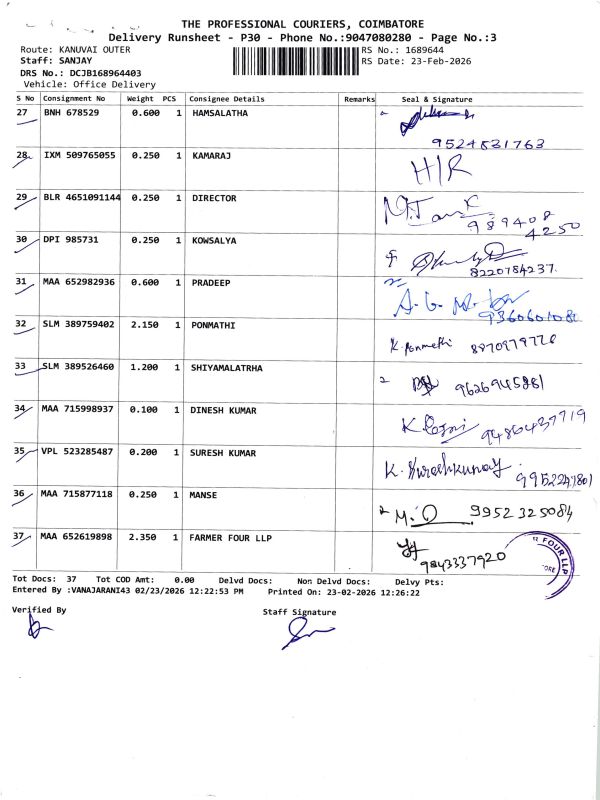 THE PROFESSIONAL COURIERS, COIMBATORE
Delivery Runsheet - P30 - Phone No.:9047080280 - Page No.:3
Route: KANUVAI OUTER
RS No.: 1689644
Staff: SANJAY
RS Date: 23-Feb-2026
DRS No.: DCJB168964403
Vehicle: Office Delivery
S No Consignment No Weight PCS Consignee Details Remarks Seal & Signature
27 BNH 678529 0.600 1 HAMSALATHA
9524831763
28 IXM 509765055 0.250 1 KAMARAJ H/R
29 BLR 4651091144 0.250 1 DIRECTOR
989408
4250
30 DPI 985731 0.250 1 KOWSALYA
8220784237.
31 MAA 652982936 0.600 1 PRADEEP
32 SLM 389759402 2.150 1 PONMATHI
K. Ponmathi
33 SLM 389526460 1.200 1 SHIYAMALATRHA
9626945861
34 MAA 715998937 0.100 1 DINESH KUMAR
9486437719
35 VPL 523285487 0.200 1 SURESH KUMAR
K. Sureshkumar
36 MAA 715877118 0.250 1 MANSE
9952325084
37 MAA 652619898 2.350 1 FARMER FOUR LLP
9843337920
R FOUR LLP
Tot Docs: 37 Tot COD Amt: 0.00 Delvd Docs: Non Delvd Docs: Delvy Pts:
Entered By :VANAJARANI43 02/23/2026 12:22:53 PM Printed On: 23-02-2026 12:26:22
Verified By
Staff Signature